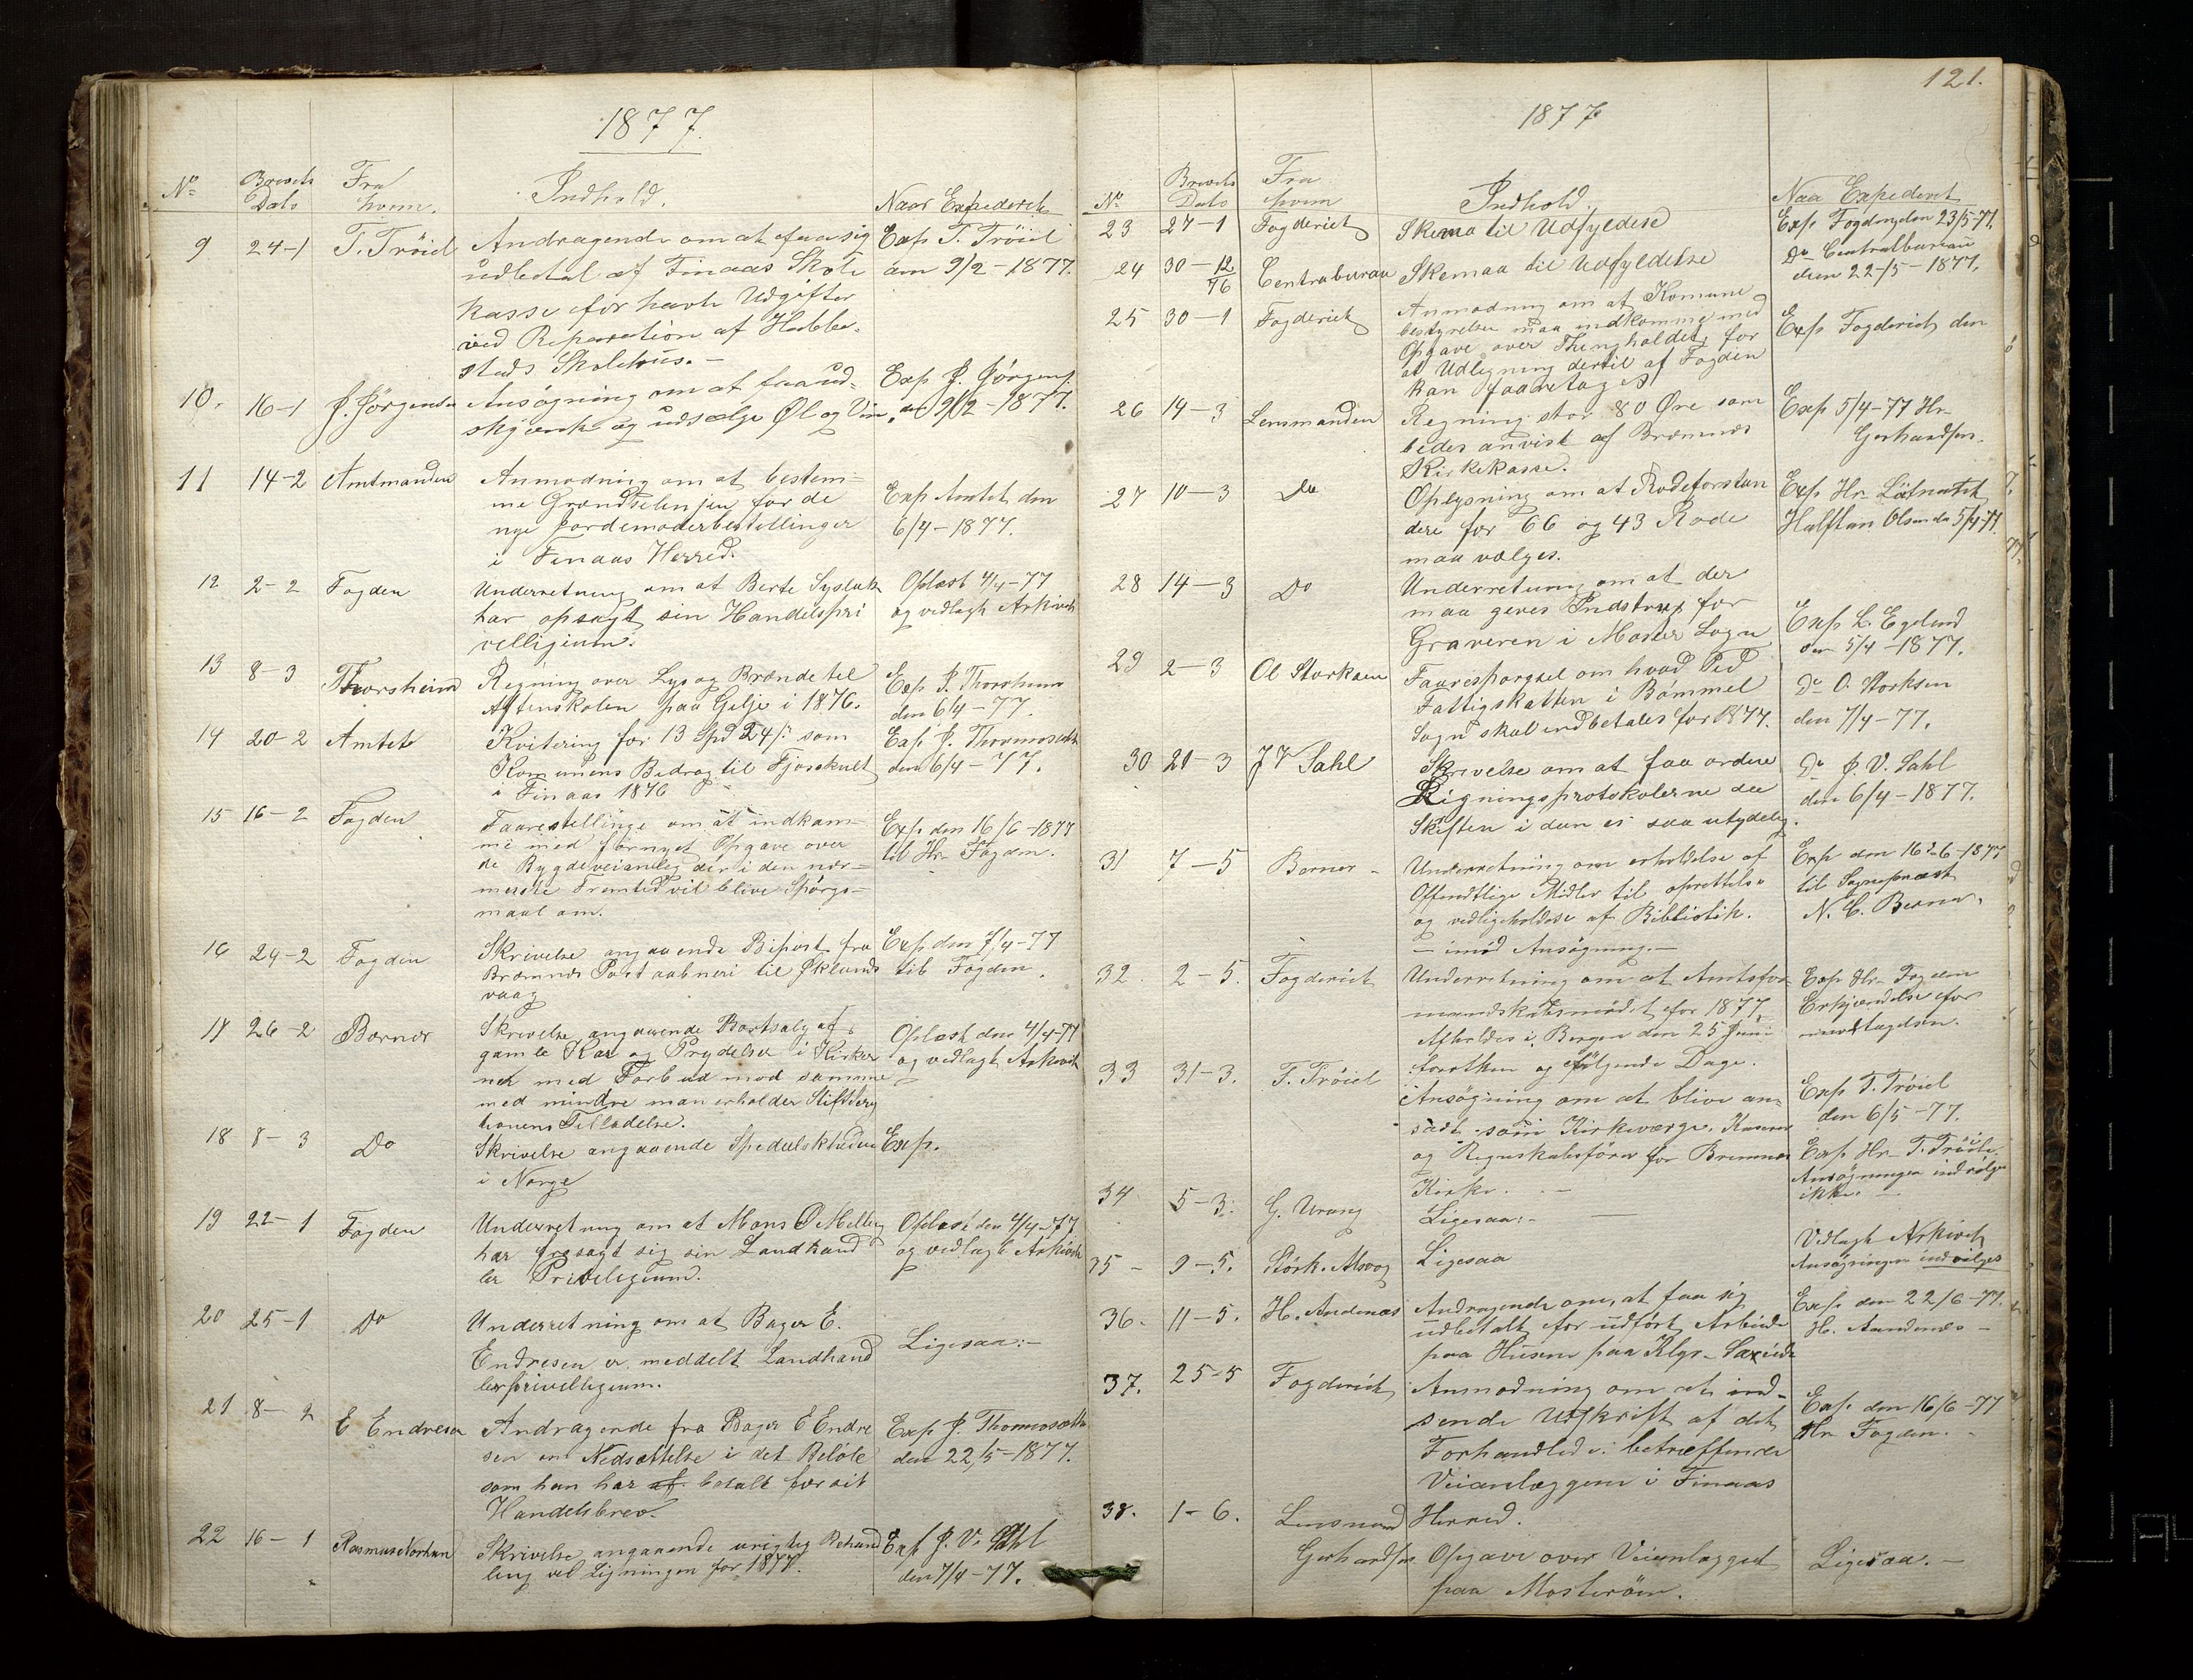 1877.
No Brevets Dato Fra hvem. Indhold. Naar Expederet
9 24-1 T. Tröiel Andragende om at faa sig Exp T. Tröiel
udbetal af Finaas Skole am 9/2-1877.
kasse for havte Udgifter
ved Reparation af Hobbe-
stads Skolehus.-
10. 16-1 J. Jörgensen Ansögning om at faa ud- Exp J. Jörgens.
skjænk og udsælge Øl og Vin. 9/2-1877.
11 14-2 Amtmanden Anmodning om at bestem-
me Grændselinjen for de Exp Amtet den
nye Jordemoderbestillinger 6/4-1877.
i Finaas Herred.
12 2-2 Fogden Underretning om at Berte Syslak Oplæst 4/4-77
har opsagt sin Handelspri og vedlagt Arkivet
velligium.
13 8-3 Thorsheim Regning over Lys og Brænde til Exp J. Thorsheim
Aftenskolen paa Gilje i 1876. den 6/4-77.
14 20-2 Amtet Kvitering for 13 Spd 24 s som Exp J. Thormosæth
Komunens Bidrag til Fjoskult den 6/4-77.
i Finaas 1876
15 16-2 Fogden Faarestellinge om at indkom- Exp den 16/6-1877
me med fornyet Opgave over til Hr. Fogden.
de Bygdeveianleg der i den nær-
meste Fremtid vil blive Spörgs-
maal om.
16 24-2 Fogden Skrivelse angaaende Bipost fra Exp den 7/4-77
Bræmnes Postaabneri til Øklands til Fogden.
vaag
17 26-2 Berner Skrivelse angaaende Bortsalg af Oplæst den 4/4-77
gamle Kar og Prydelser i Kirker og vedlagt Arkivet
ne med Forbud mod samme
med mindre man erholder Stiftdireg
tionens Tilladelse.
18 8-3 Do Skrivelse angaaende Spedalskheden Exp.
i Norge
19 22-1 Fogden Underretning om at Mons O Melling Oplæst den 4/4-77
har frasagt sig sin Landhand og vedlagt Arkivet
ler Privelegium.
20 25-1 Do Underretning om at Bager E.
Endresen er meddelt Landhand Ligesaa:-
lerprivellegium.
21 8-2 E Endresen Andragende fra Bager E Endre Exp J. Thormosæth
sen om Nedsættelse i det Belöb den 22/5-1877.
som han har af betalt for sit
Handelsbrev.
22 16-1 Rasmus Skrivelse angaaende urigtig Behand Exp J. V. Sahl
ling ved Ligningen for 1877. den 7/4-77.
121.
1877
No Brevets Dato Fra hvem Indhold. Naa Expederet
23 27-1 Fogderiet Skema til Udfyldelse Exp Fogden den 23/5-77.
24 30-12/76 Centralbureau Skemaa til Udfyldelse Do Centralbureau den 22-/5-1877.
25 30-1 Fogderiet Anmodning om at Komune
bestyrelsen maa indkomme med
Opgave over Thingholdet, for Exp Fogderiet den
at Udligning dertil af Fogden
kan faaretages
26 14-3 Lensmanden Regning stor 80 Øre som Exp 5/4-77 Hr.
bedes anvist af Bræmnes Gerhardsen.
Kirkekasse.
27 10-3 Do Oplysning om at Rodeforstan Exp Hr. Löitnant
dere for 66 og 43 Rode Halfdan Olsen den 5/4-77.
maa vælges.
28 14-3 Do Underretning om at der
maa geves Indstrux for Exp L. Egelund
Graveren i Moster Sogn den 5/4-1877.
29 2-3 Ol Storksen Faaresporgsel om hvad Tid Do O. Storksen
Fattigskatten i Bömmel den 7/4-77.
Sogn skal indbetales for 1877.
30 21-3 J V Sahl Skrivelse om at faa ordne Do J. V. Sahl
Ligningsprotokolerne da den 6/4-1877.
Skriften i den er saa utydelig.
31 7-5 Berner- Underretning om erholdelse af Exp den 16-6-1877
Offendtlige Midler til oprettelse til Sognepræst
og vedligeholdese af Bibliotik. N. C. Berner.
- imod Ansögning.-
32. 2-5. Fogderiet Underretning om at Amtsfor Exp Hr. Fogden
mandskabsmödet for 1877 Erkjændelse for
Afholdes i Bergen den 25 Juni modtagelsen.
førstken og følgende Dage.
33 31-3. T. Tröiel Ansögning om at blive an- Exp T. Tröiel
sadt som Kirkeværge, Kaserer den 6/5-77.
og Regnskabsförer for Bremnes
Kirke.
34 5-3. G. Urang Ligesaa:- Exp Hr. T. Tröiel.
Ansögningen indvilges ikke.
35- 9-5. Störk. Alsvog Ligesaa Vedlagt Arkivet
Ansögningen indvilges
36. 11-5. H. Andenæs Andragende om, at faa sig Exp den 22/6-77.
udbetalt for udfört Arbeide H. Aandenæs-
paa Husene paa Klgr. Saxeide
37. 25-5 Fogderiet Anmodning om at ind- Exp den 16/6-77
sende Udskrift af det Hr Fogden.
Forhandlede betræffende
Veianlæggene i Finaas
Herred.
38. 1-6. Lensmand
Gerhardsen Opgave over Veianlægget Ligesaa.-
paa Mosteröen.